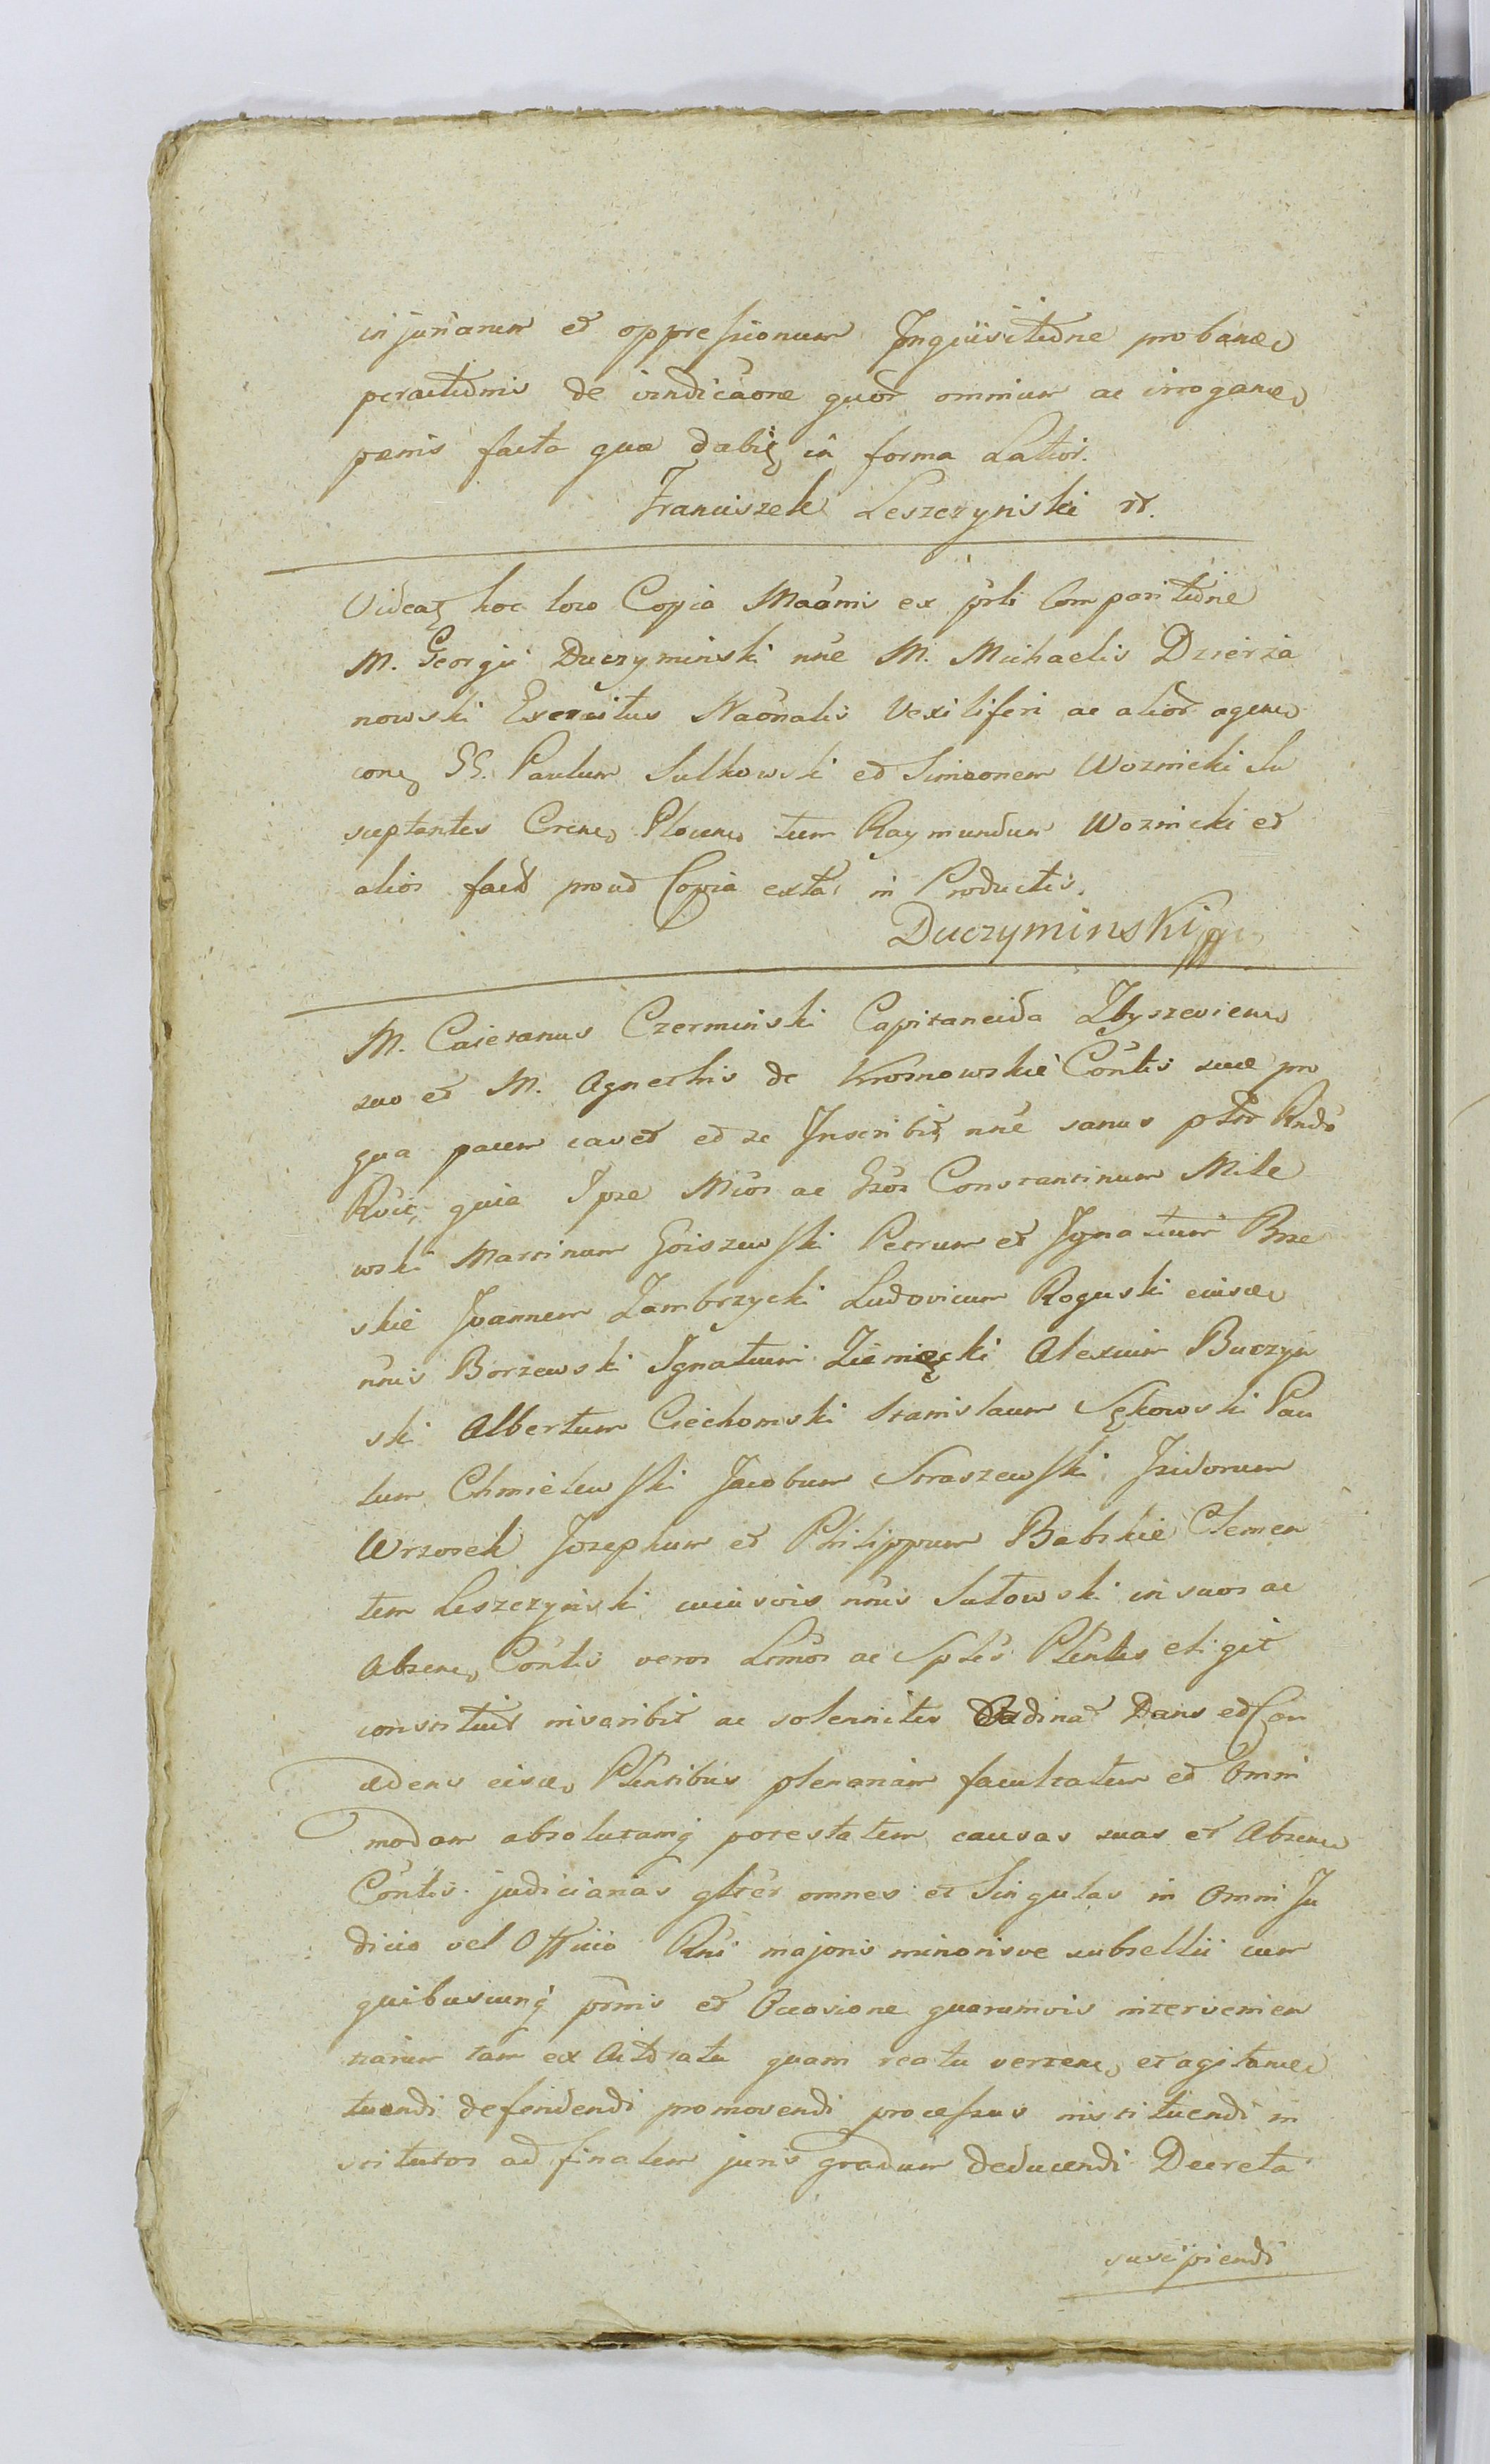 injuriarum et oppressionum Inquisitiõne probanȩ
peractiõnis de vindicãone quor̃ omnium ac irroganȩ
pœnis facta quæ dabiţ in forma Latior.
Franciszek Leszczynski
Videaţ hoc loco Copia Maõnis ex prli Comparitiõne
M. Georgii Duczyminski nñe M. Michaelis Dzierża
nowski Exercitus Naõnalis Vexiliferi ac alior̃ agenȩ
conȩ GG. Paulum Sulkowski et Simeonem Woznicki Su
sceptantes Crenȩ Plocenȩ tum Raymundum Woznicki et
alios fact̃ prout Copia exta in Productis.
Duczyminski
M. Caietanus Czerminski Capitaneida Zbyszevienȩ
suo et M. Agnethis de Krosnowskie Cõntis suæ pro
qua pacem cavet et se Inscribiţ nñe sanus
quia Ipse Mcõs ac Gsõs Constantinum Mile
wski Martinum Goiszewski Petrum et Ignatium Brze
skie Joannem Zambrzycki Ludovicum Roguski eiusdȩ
nñis Borzewski Ignatium Ziemięcki Alexium Buczyn
ski Albertum Ciechomski Stanislaum Sękowski Pau
lum Chmielewski Jacobum Straszewski Isidorum
Wrzosek Josephum et Philippum Babskie Clemen
tem Leszczynski cuiusvis nñis Sutowski in suos ac
Absenȩ Cõntis veros Lmõs ac Splẽs Plẽntes eligit
constituit inscribit ac solenniter Ordinat Dans et Con
cedens eisdȩ Plẽntibus plenariam facultatem et Omni
modam absolutamq potestatem causas suas et Absenȩ
Cõntis judiciarias gltẽr omnes et Singulas in Omni Ju
dicio vel Officio Rñi majoris minorisve subsellii cum
quibuscunq psõnis et Occasione quarumvis intervenien
tiarum tam ex Actoratu quam reatu vertenȩ et agitanȩ
tuendi defendendi promovendi processus instituendi in
stitutos ad finalem juris gradum deducendi Decreta
suscipiendi